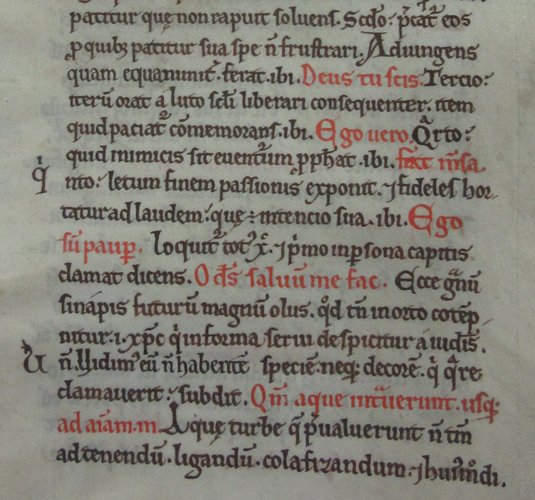 patitur quę non rapuit soluens. Scd̄o. p̄cat̄ eos
ꝓ quibꝫ patitur sua spe n̄ frustrari. Adiungens
quam equanimit̄. ferat. ibi. Deus tu scis. Tercio.
iterū orat a luto scl̄i liberari consequenter. item
quid paciat᷑ cōmemorans. ibi. Ego uero. Qͣrto.
quid inimicis sit euenturum ꝓph̄at. ibi. fiat m̄sa.
qͥ
nto. letum finem passionis exponit. ⁊ fideles hor
tatur ad laudem. quę ÷ intencio sua. ibi. Ego
sū paup̄. loquit᷑ tot᷒ x̄. ⁊ pͥmo in ꝑsona capitis
clamat dicens. O ds̄ saluū me fac. Ecce gͣnū
sinapis futurū magnū olus. qd̄ tn̄ in orto cotēp
nitur. i. xp̄c qͥ in forma serui despicitur a iudīs.
Ū
n̄. Vidim᷒ eū n̄ habentē speciē. neqꝫ decorē. qͥ qͣre
clamauerit. subdit. Qm̄ aque intͣuerunt. usqꝫ
ad aīam. m. Aquę turbe q̄ p̄ualuerunt n̄ tm̄
ad tenendū. ligandū. colafizandum. ⁊ huīmōdi.